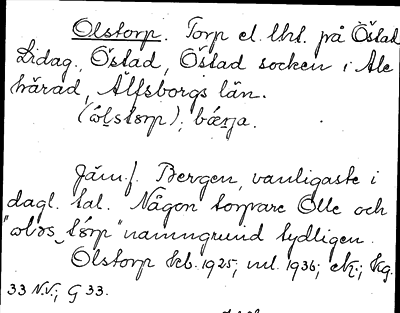 Olstorp. Torp el. lht. på Östad
Lidag., Östad, Östad socken i Ale
härad, Älfsborgs län.
(ώlstorp); bærja.
Jäm.f. Bergen, vanligaste i
dagl. tal. Någon torpare Olle och
"ωləs torp" namngrund tydligen.
Olstorp Kb. 1925; ml. 1936; ek.; Kg.
33 N.V.; G 33.